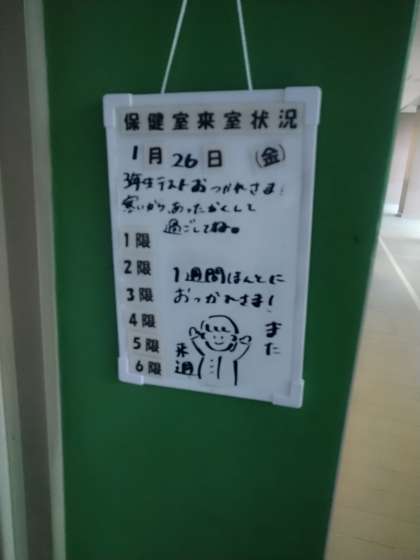 保健室来室状況
1月26日(金)
3年生テストおつかれさま!
寒いから、あったかくして
過ごしてね。
1限
2限
3限
4限
5限
6限
1週間ほんとに
おつかれさま!
また
来週